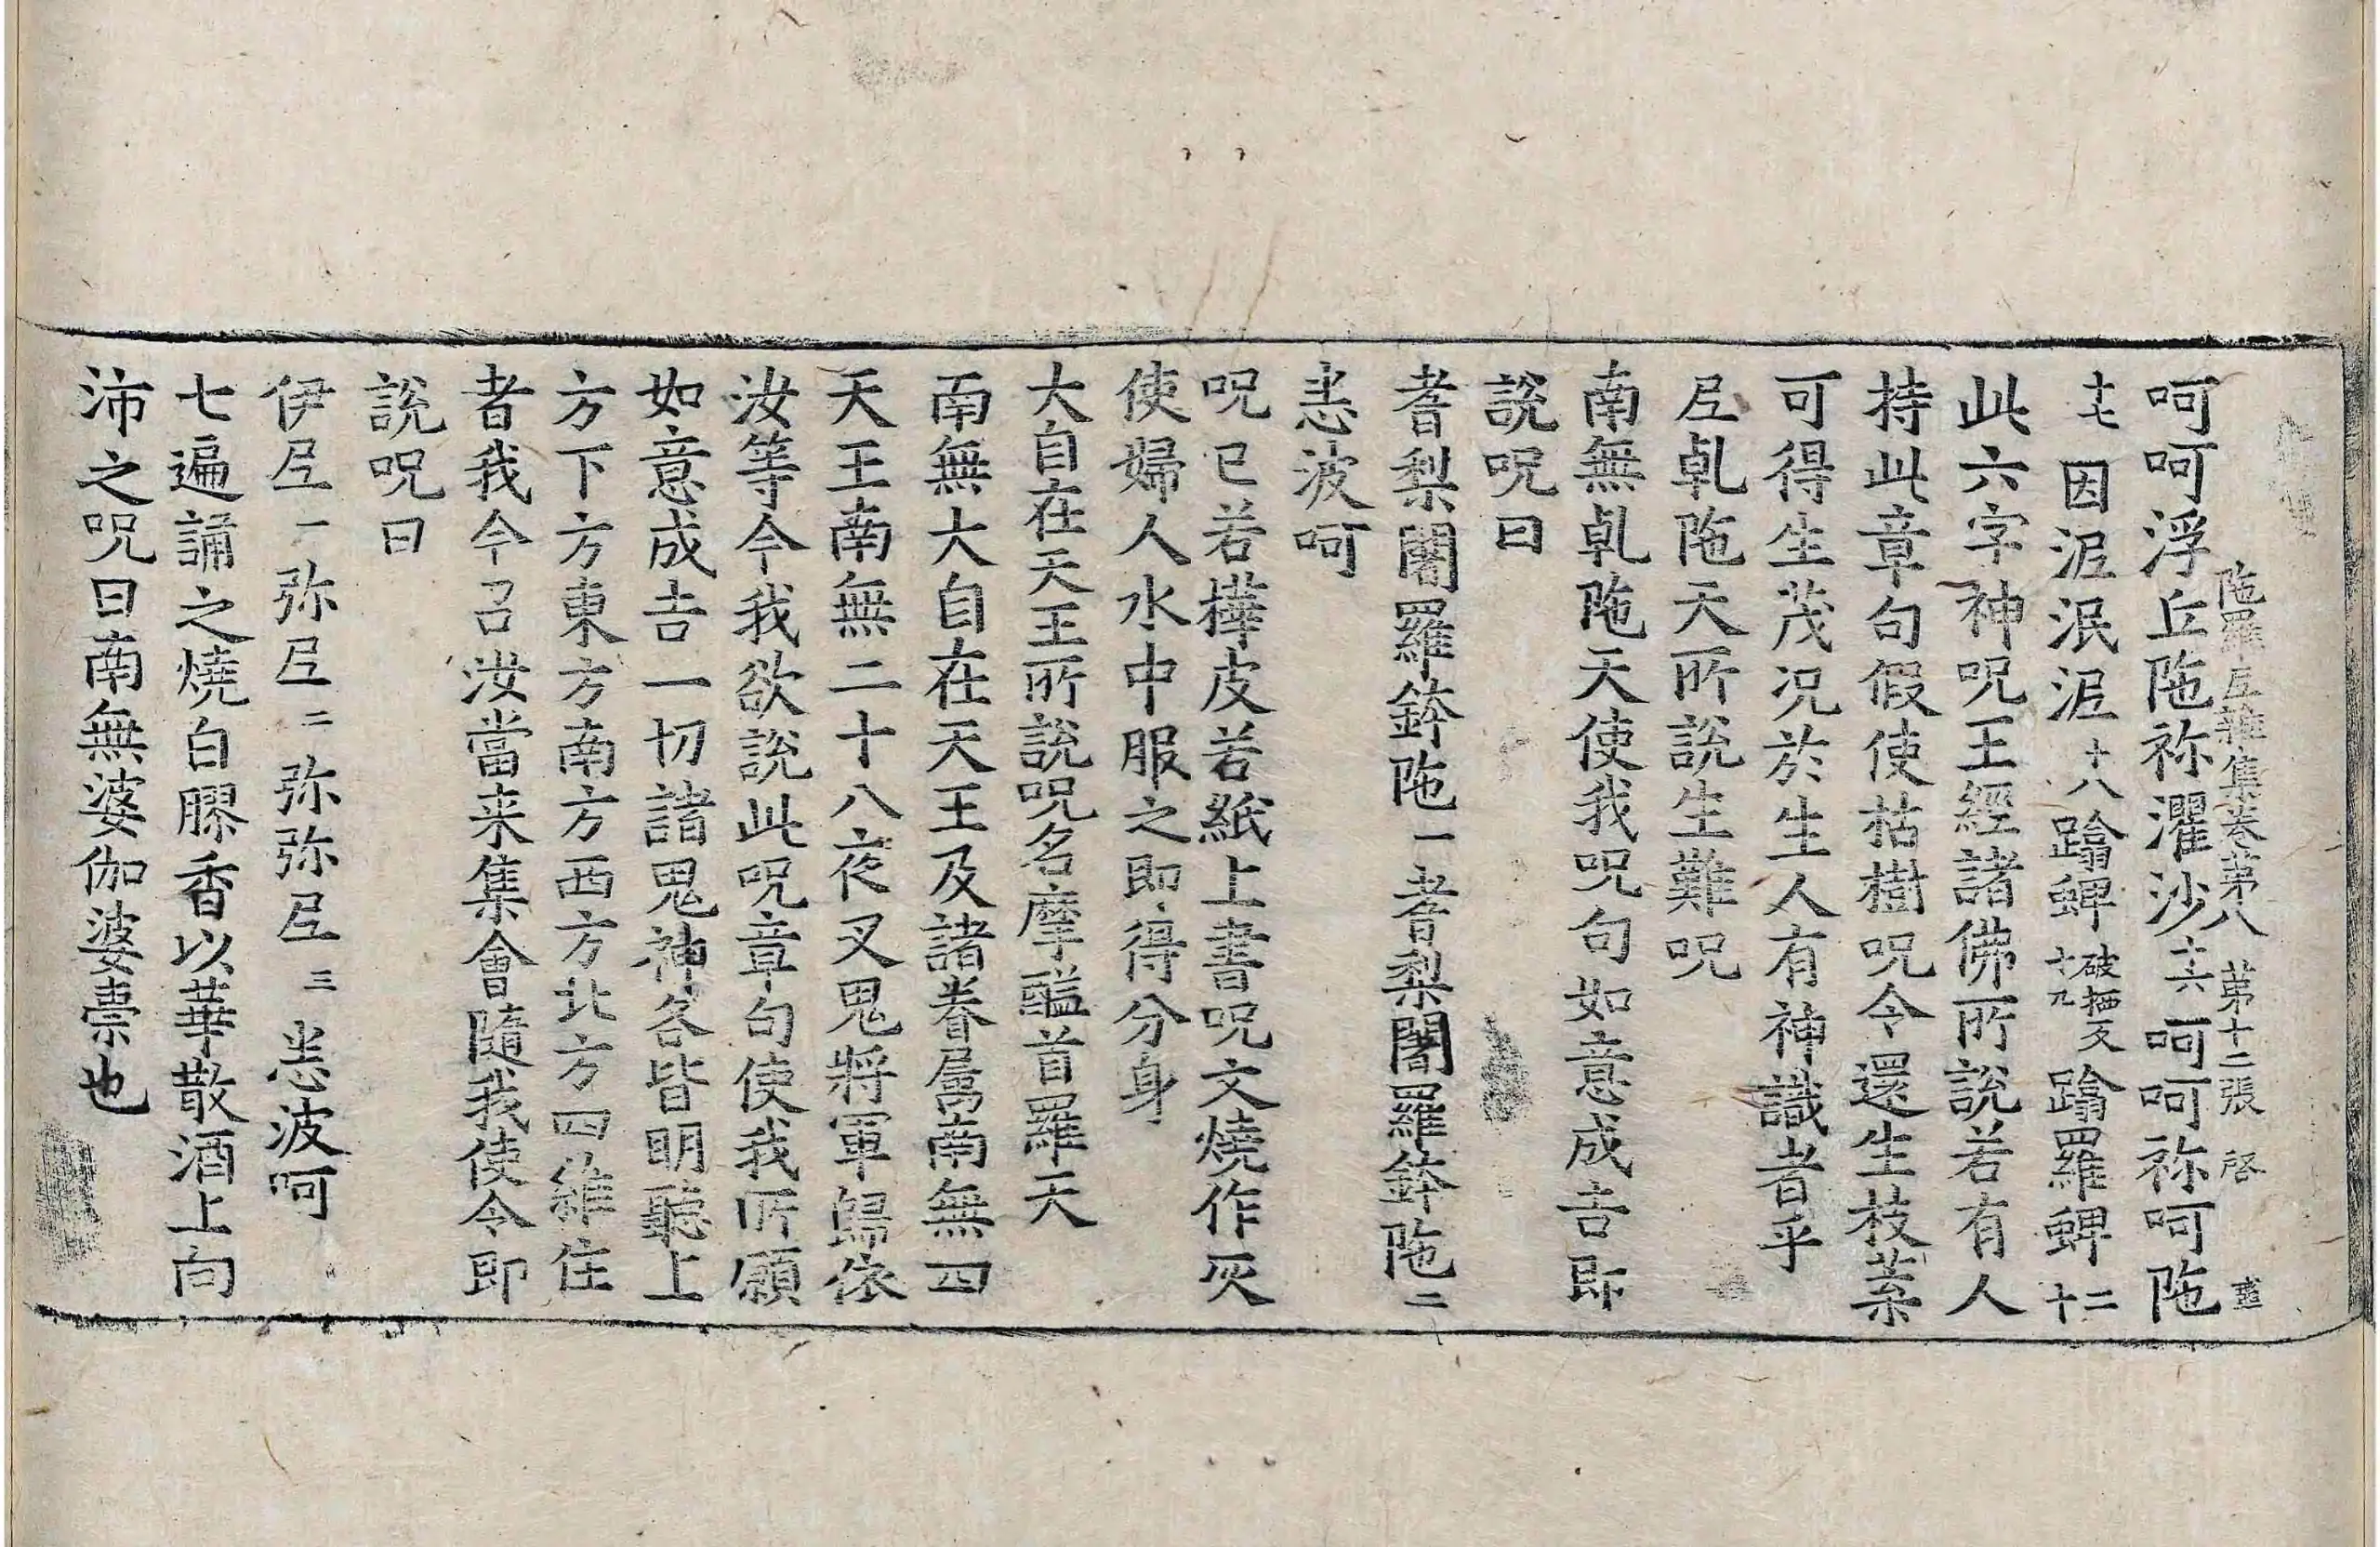 陁羅𡰱雜集卷苐八　苐十二張　啓
呵呵浮丘陁祢濯沙十六呵呵祢呵陁
十七因泥泯泥十八蹹蜱破栖反十九蹹羅蜱二十
此六字神呪王經諸佛所說若有人
持此章句假使枯樹呪令還生枝葉
可得生茂况於生人有神識者乎
𡰱乹陁天所說生難呪
南無乹陁天使我呪句如意成吉即
說呪曰
耆梨闍羅鉢陁一耆梨闍羅鉢陁二
恚波呵
呪已若樺皮若紙上書呪文燒作灰
使婦人水中服之即得分身
大自在天王所說呪名摩醯首羅天
南無大自在天王及諸眷属南無四
天王南無二十八夜叉鬼將軍歸依
汝等今我欲說此呪章句使我所願
如意成吉一切諸鬼神各皆明聽上
方下方東方南方西方北方四維住
者我今召汝當来集會隨我使令即
說呪曰
伊𡰱一弥𡰱二弥弥𡰱三恚波呵
七遍誦之燒白膠香以華散酒上向
沛之呪曰南無婆伽婆祟也